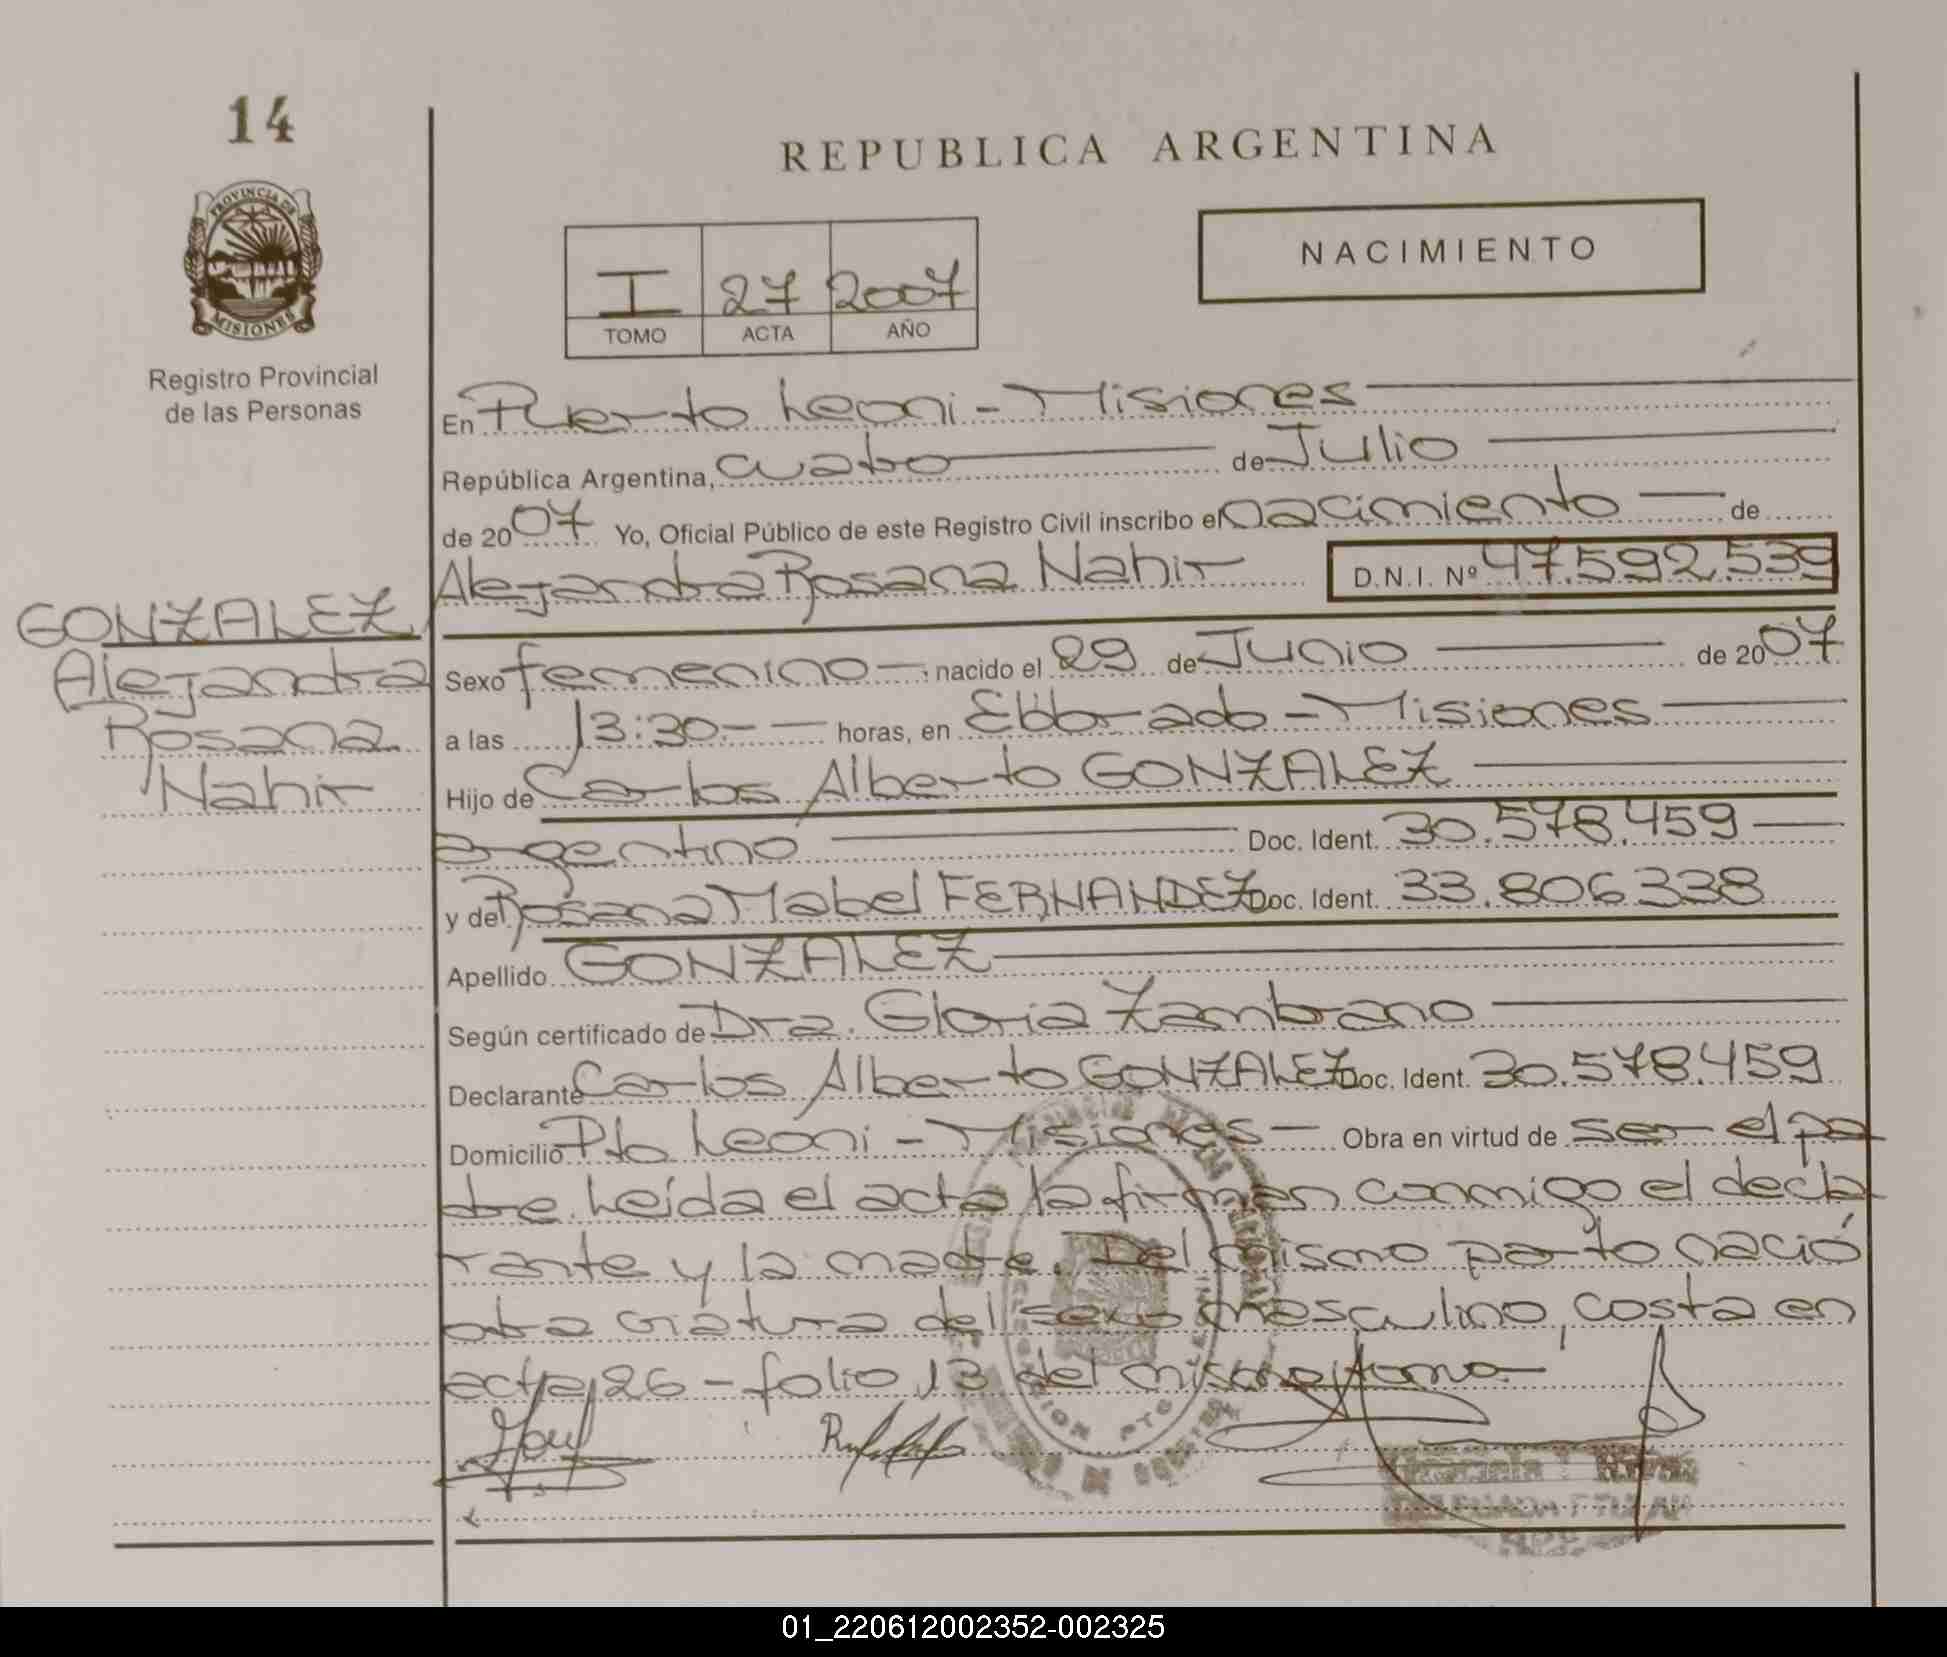 14
REPUBLICA ARGENTINA
PROVINCIA DE
MISIONES
Registro Provincial
de las Personas
NACIMIENTO
I 27 2007
TOMO ACTA AÑO
En Puerto Leoni - Misiones
República Argentina, cuatro de Julio
de 2007 Yo, Oficial Público de este Registro Civil inscribo el nacimiento de
Alejandra Rosana Nahir D.N.I. Nº 47.592.539
GONZALEZ
Alejandra
Rosana
Nahir
Sexo femenino nacido el 29 de Junio de 2007
a las 13:30 horas, en Eldorado - Misiones
Hijo de Carlos Alberto GONZALEZ
argentino Doc. Ident. 30.578.459
y de Rosana Mabel FERNANDEZ Doc. Ident. 33.806338
Apellido GONZALEZ
Según certificado de Dra. Gloria Zambrano
Declarante Carlos Alberto GONZALEZ Doc. Ident. 30.578.459
Domicilio Pto Leoni - Misiones - Obra en virtud de ser el pa
dre. Leída el acta la firman conmigo el decla
rante y la madre. Del mismo parto nació
otra criatura del sexo masculino, costa en
acta 26 - folio 13 del mismo tomo
01_220612002352-002325